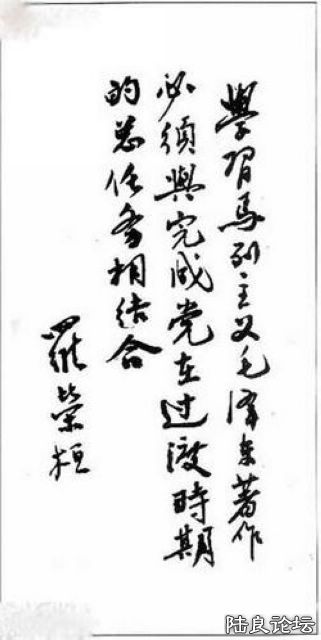 學習馬列主义毛泽东著作
必須與完成党在过渡時期
的总任务相结合
羅榮桓
陆良论坛